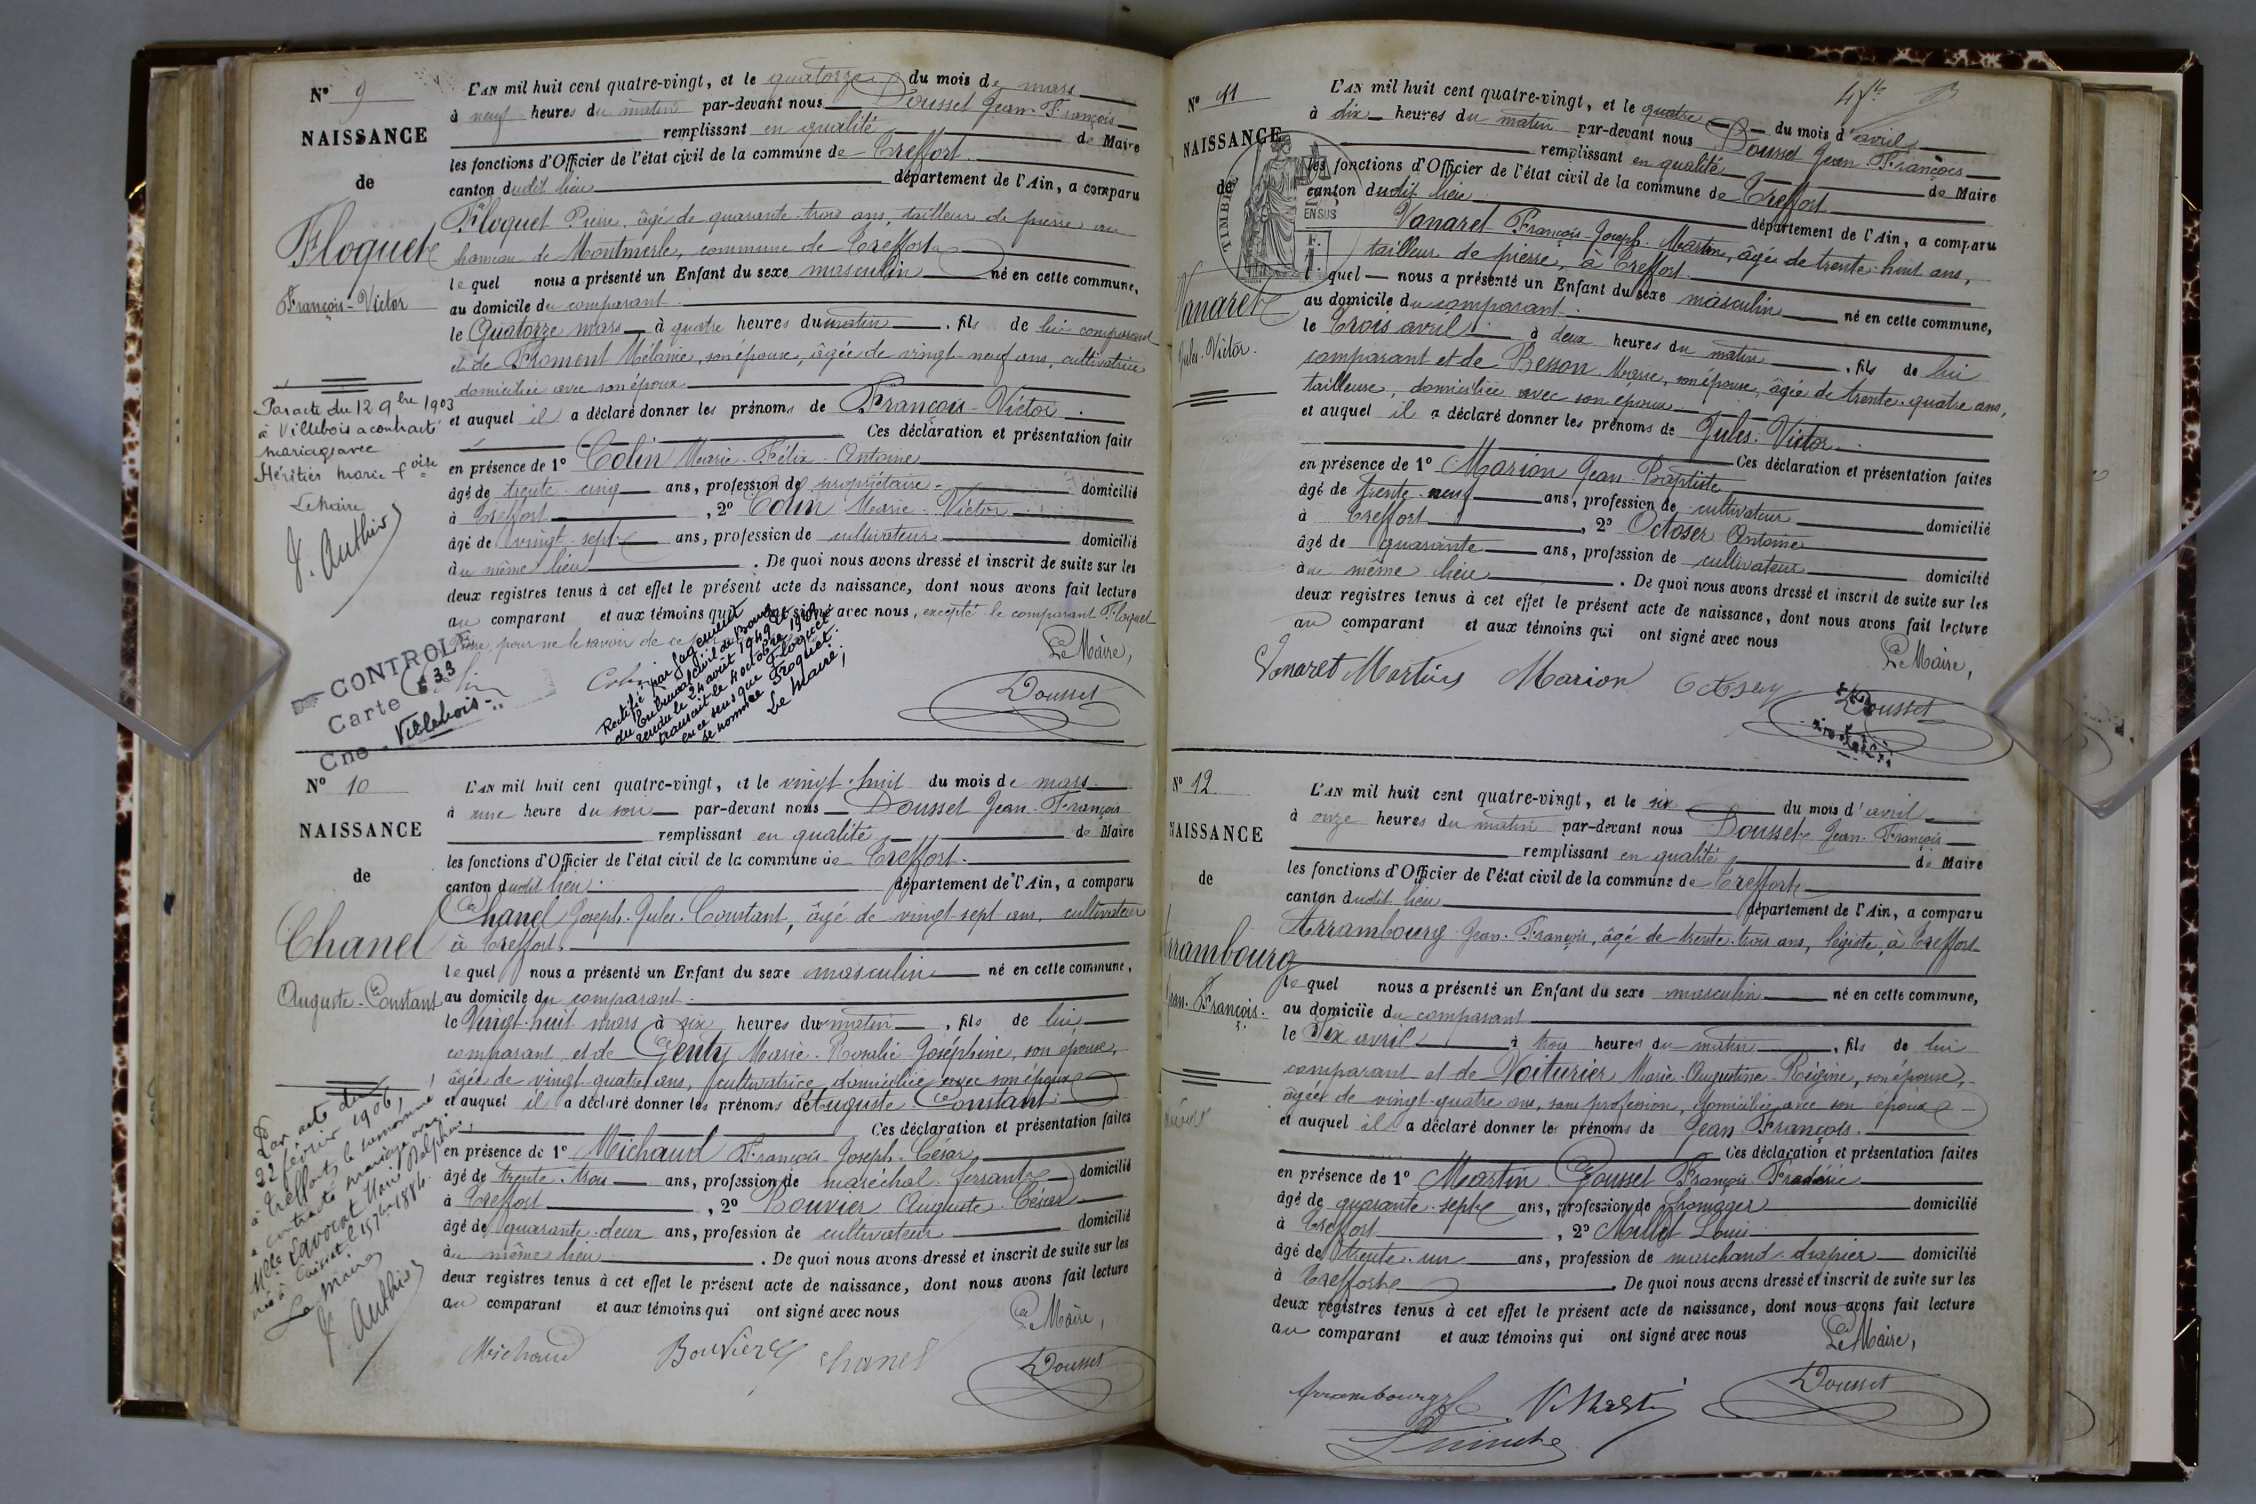 N° 9
NAISSANCE
de
Floquet
François-Victor
Par acte du 12 9bre 1903
à Villebois a contracté
mariage avec
Héritier Marie Foise
Le Maire
J. Authier
L'AN mil huit cent quatre-vingt, et le quatorze du mois de mars
à neuf heures du matin par-devant nous Dousset Jean-François
remplissant en qualité de Maire
les fonctions d'Officier de l'état civil de la commune de Treffort
canton dudit lieu département de l'Ain, a comparu
Floquet Pierre, âgé de quarante-trois ans, tailleur de pierre au
hameau de Montmerle, commune de Treffort
lequel nous a présenté un Enfant du sexe masculin né en cette commune,
au domicile du comparant
le Quatorze mars à quatre heures du matin, fils de lui comparant
et de Froment Mélanie, son épouse, âgée de vingt-neuf ans, cultivatrice
domiciliée avec son époux
et auquel il a déclaré donner les prénoms de François-Victor.
Ces déclaration et présentation faites
en présence de 1° Colin Marie-Félix-Antoine
âgé de trente-cinq ans, profession de propriétaire domicilié
à Treffort, 2° Colin Marie-Victor
âgé de vingt-sept ans, profession de cultivateur domicilié
au même lieu. De quoi nous avons dressé et inscrit de suite sur les
deux registres tenus à cet effet le présent acte de naissance, dont nous avons fait lecture
au comparant et aux témoins qui ont signé avec nous, excepté le comparant Floquet
Pierre, pour ne le savoir de ce
Le Maire,
Colin
Dousset
Rectifié par jugement
du tribunal civil de Bourg
rendu le 24 août 1949 et
transcrit le 4 octobre 1949
en ce sens que Floquet
se nomme Froquet.
Le Maire,
CONTROLE
Carte 633
Cne Villebois
N° 10
NAISSANCE
de
Chanel
Auguste-Constant
Par acte du
22 février 1906,
à Treffort, le surnommé
a contracté mariage avec
Mlle Lavocat Marie Delphine
née à Cuisiat le 15 7bre 1886.
Le Maire
J. Authier
L'AN mil huit cent quatre-vingt, et le vingt-huit du mois de mars
à une heure du soir par-devant nous Dousset Jean-François
remplissant en qualité de Maire
les fonctions d'Officier de l'état civil de la commune de Treffort
canton dudit lieu département de l'Ain, a comparu
Chanel Joseph-Jules-Constant, âgé de vingt-sept ans, cultivateur
à Treffort
lequel nous a présenté un Enfant du sexe masculin né en cette commune,
au domicile du comparant
le Vingt-huit mars à six heures du matin, fils de lui
comparant et de Genty Marie-Rosalie-Joséphine, son épouse,
âgée de vingt-quatre ans, cultivatrice domiciliée avec son époux
et auquel il a déclaré donner les prénoms de Auguste Constant
Ces déclaration et présentation faites
en présence de 1° Michaud François-Joseph-César
âgé de trente-trois ans, profession de maréchal-ferrant domicilié
à Treffort, 2° Bouvier Auguste César
âgé de quarante-deux ans, profession de cultivateur domicilié
au même lieu. De quoi nous avons dressé et inscrit de suite sur les
deux registres tenus à cet effet le présent acte de naissance, dont nous avons fait lecture
au comparant et aux témoins qui ont signé avec nous
Le Maire,
Michaud Bouvier Chanel
Dousset
N° 11
NAISSANCE
de
Vanaret
Jules-Victor.
TIMBRE
L'AN mil huit cent quatre-vingt, et le quatre du mois d'avril
à dix heures du matin par-devant nous Dousset Jean-François
remplissant en qualité de Maire
les fonctions d'Officier de l'état civil de la commune de Treffort
canton dudit lieu département de l'Ain, a comparu
Vanaret François-Joseph-Martin, âgé de trente-huit ans,
tailleur de pierre, à Treffort
lequel nous a présenté un Enfant du sexe masculin né en cette commune,
au domicile du comparant
le Trois avril à deux heures du matin, fils de lui
comparant et de Besson Marie, son épouse, âgée de trente-quatre ans,
tailleuse, domiciliée avec son époux
et auquel il a déclaré donner les prénoms de Jules-Victor
Ces déclaration et présentation faites
en présence de 1° Marion Jean-Baptiste
âgé de trente-neuf ans, profession de cultivateur domicilié
à Treffort, 2° Octoser Antoine
âgé de quarante ans, profession de cultivateur domicilié
au même lieu. De quoi nous avons dressé et inscrit de suite sur les
deux registres tenus à cet effet le présent acte de naissance, dont nous avons fait lecture
au comparant et aux témoins qui ont signé avec nous
Le Maire,
Vanaret Martin Marion
Dousset
N° 12
NAISSANCE
de
Arrambourg
Jean-François.
L'AN mil huit cent quatre-vingt, et le six du mois d'avril
à onze heures du matin par-devant nous Dousset Jean-François
remplissant en qualité de Maire
les fonctions d'Officier de l'état civil de la commune de Treffort
canton dudit lieu département de l'Ain, a comparu
Arrambourg Jean-François, âgé de trente-trois ans, légiste, à Treffort
lequel nous a présenté un Enfant du sexe masculin né en cette commune,
au domicile du comparant
le Six avril à trois heures du matin, fils de lui
comparant et de Voiturier Marie-Augustine-Régine, son épouse,
âgée de vingt-quatre ans, sans profession, domiciliée avec son époux
et auquel il a déclaré donner les prénoms de Jean-François.
Ces déclaration et présentation faites
en présence de 1° Martin Rousset François Frédéric
âgé de quarante-sept ans, profession de fromager domicilié
à Treffort, 2° Millet Louis
âgé de trente-un ans, profession de marchand-drapier domicilié
à Treffort. De quoi nous avons dressé et inscrit de suite sur les
deux registres tenus à cet effet le présent acte de naissance, dont nous avons fait lecture
au comparant et aux témoins qui ont signé avec nous
Le Maire,
Arrambourg
Dousset